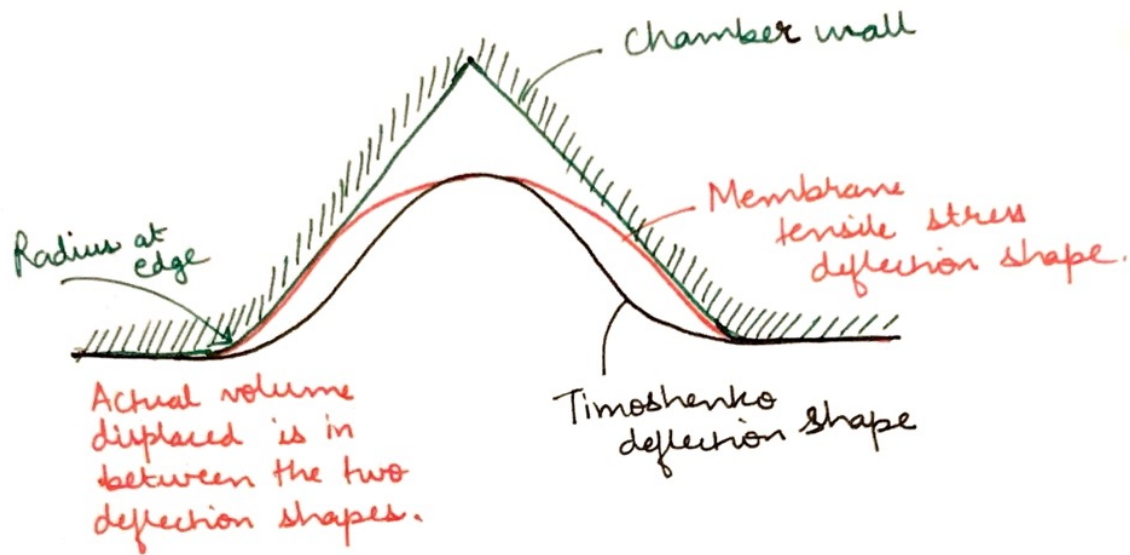 Chamber wall
Radius at
edge
Membrane
tensile stress
deflection shape.
Actual volume
displaced is in
between the two
deflection shapes.
Timoshenko
deflection shape